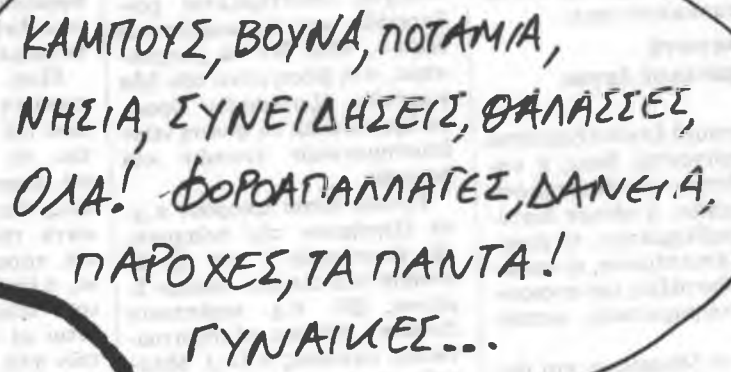 ΚΑΜΠΟΥΣ, ΒΟΥΝΑ, ΠΟΤΑΜΙΑ,
ΝΗΣΙΑ, ΣΥΝΕΙΔΗΣΕΙΣ, ΘΑΛΑΣΣΕΣ,
ΟΛΑ! ΦΟΡΟΑΠΑΛΛΑΓΕΣ, ΔΑΝΕΙΑ,
ΠΑΡΟΧΕΣ, ΤΑ ΠΑΝΤΑ!
ΓΥΝΑΙΚΕΣ...